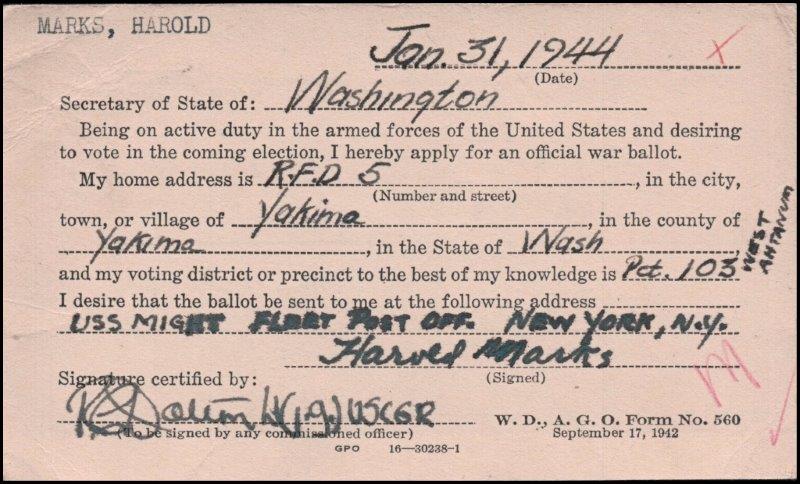 MARKS, HAROLD
Jan. 31, 1944 X
(Date)
Secretary of State of: Washington
Being on active duty in the armed forces of the United States and desiring
to vote in the coming election, I hereby apply for an official war ballot.
My home address is R.F.D 5, in the city,
(Number and street)
town, or village of Yakima, in the county of
Yakima, in the State of Wash,
and my voting district or precinct to the best of my knowledge is Pct. 103
WEST
AHTANUM
I desire that the ballot be sent to me at the following address
USS MIGHT FLEET POST OFF. NEW YORK, N.Y.
Harold Marks
(Signed)
M
Signature certified by:
Lt(j.g.) USCGR
(To be signed by any commissioned officer)
W. D., A. G. O. Form No. 560
September 17, 1942
GPO 16—30238-1